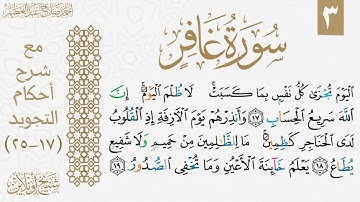 ٣
سُورَةُ غَافِرٍ
ٱلْيَوْمَ تُجْزَىٰ كُلُّ نَفْسٍۭ بِمَا كَسَبَتْ ۚ لَا ظُلْمَ ٱلْيَوْمَ ۚ إِنَّ
ٱللَّهَ سَرِيعُ ٱلْحِسَابِ ١٧ وَأَنذِرْهُمْ يَوْمَ ٱلْـَٔازِفَةِ إِذِ ٱلْقُلُوبُ
لَدَى ٱلْحَنَاجِرِ كَـٰظِمِينَ ۚ مَا لِلظَّـٰلِمِينَ مِنْ حَمِيمٍ وَلَا شَفِيعٍ
يُطَاعُ ١٨ يَعْلَمُ خَآئِنَةَ ٱلْأَعْيُنِ وَمَا تُخْفِى ٱلصُّدُورُ ١٩
مع
شرح
أحكام
التجويد
(١٧-٢٥)